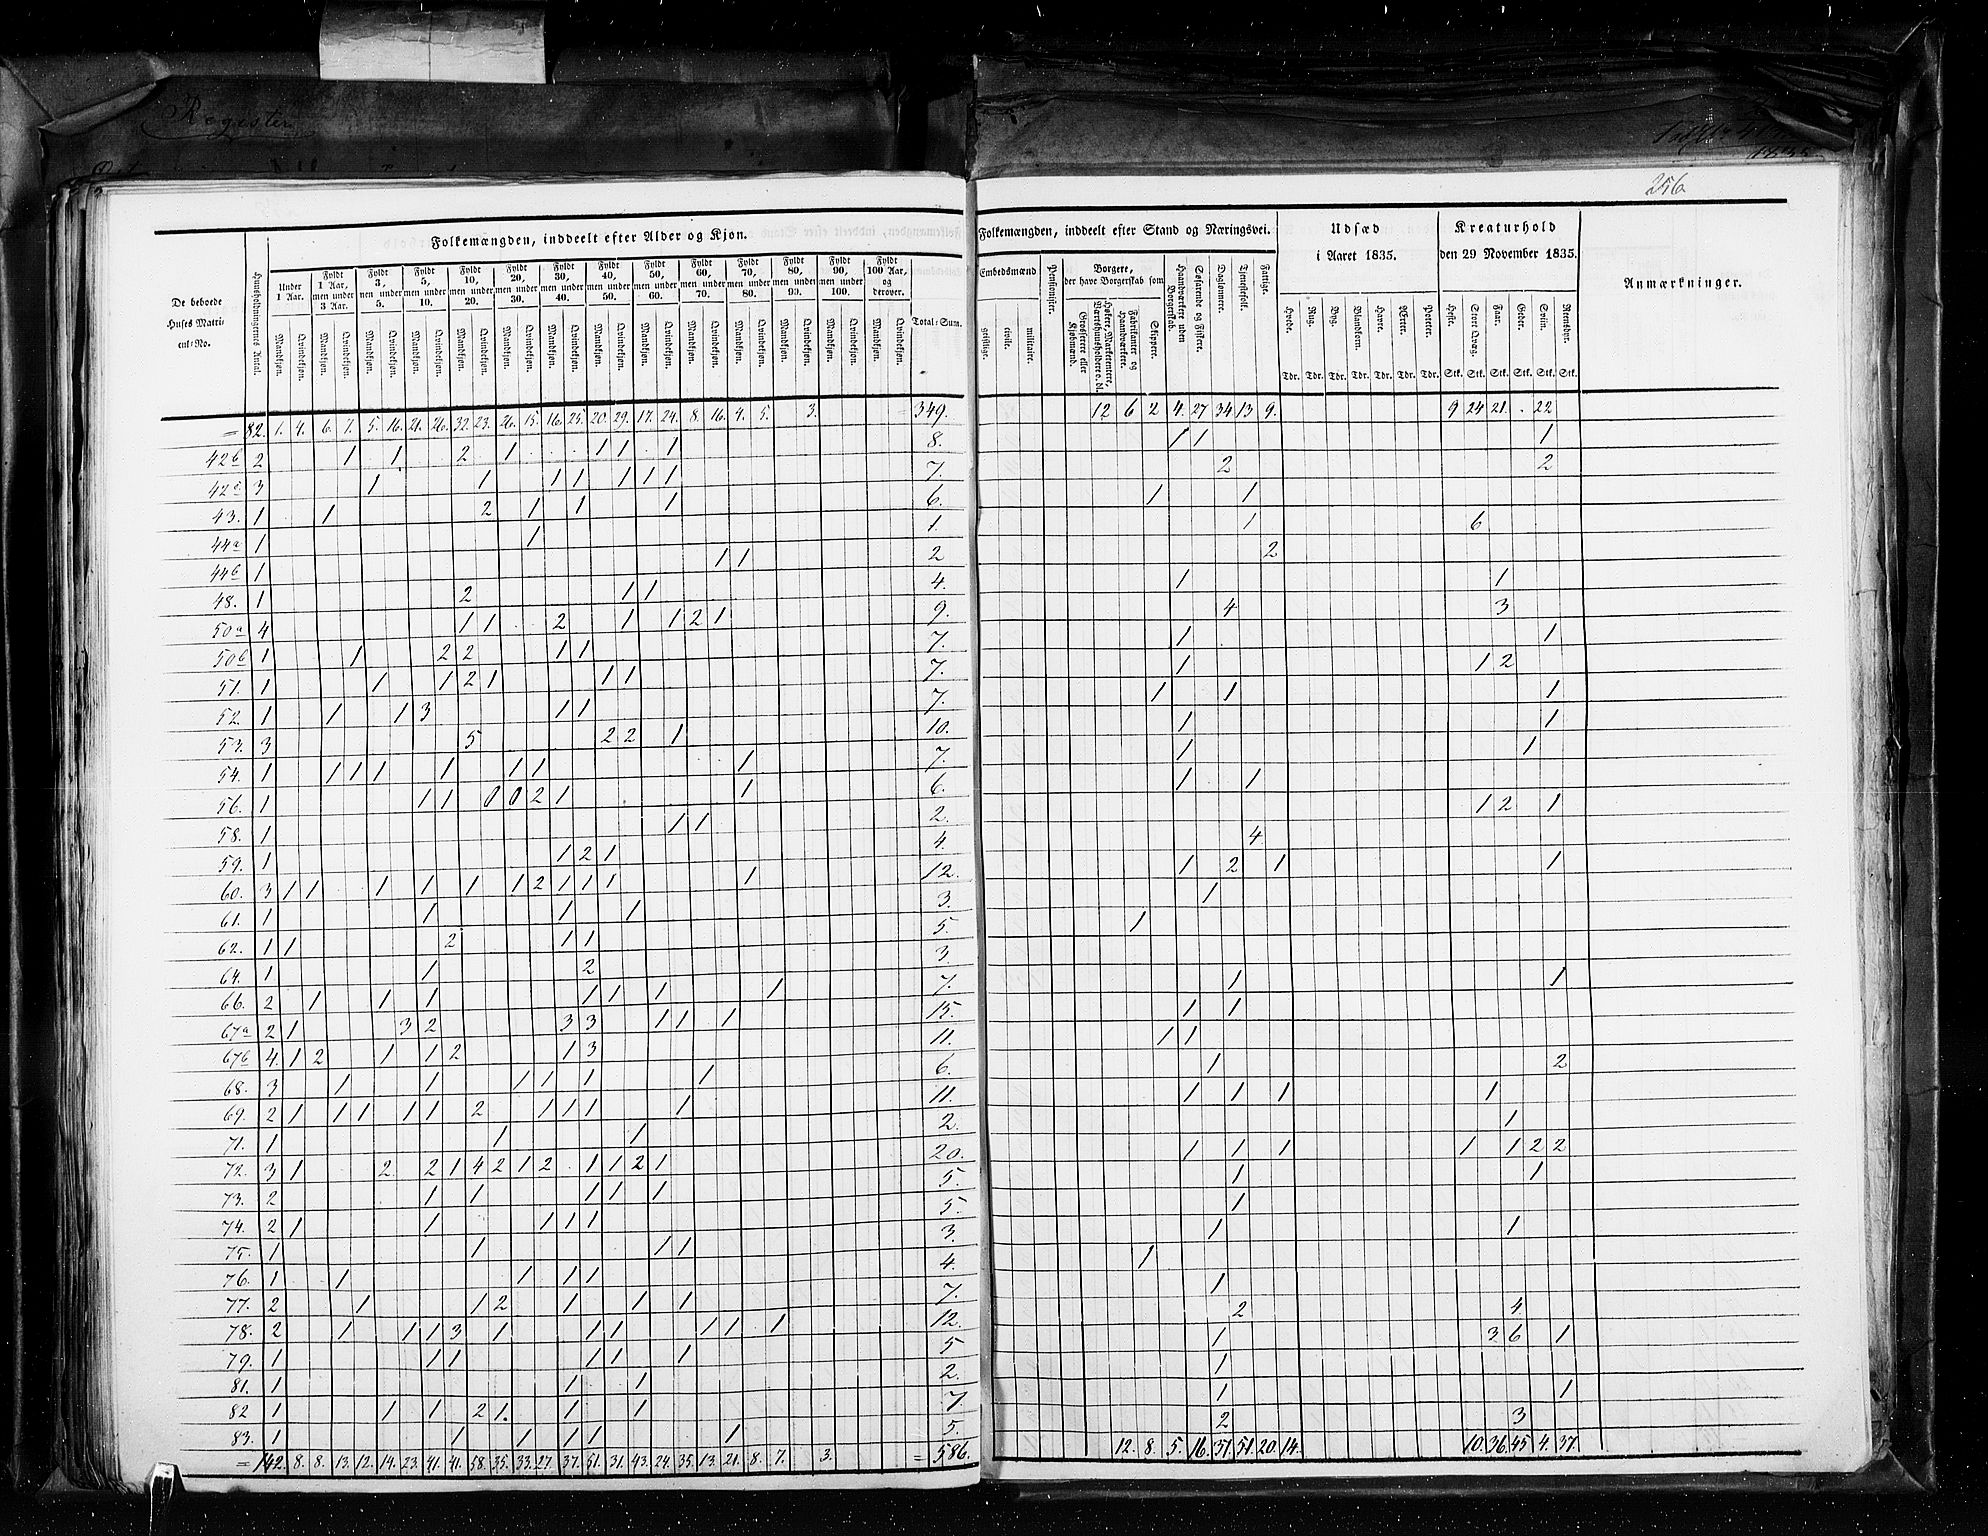 Register
256
Folkemængden, inddeelt efter Alder og Kjøn.
De beboede Huses Matrikul=No.
Huusholdningernes Antal.
Under 1 Aar.
Fyldt 1 Aar, men under 3 Aar.
Fyldt 3, men under 5.
Fyldt 5, men under 10.
Fyldt 10, men under 20.
Fyldt 20, men under 30.
Fyldt 30, men under 40.
Fyldt 40, men under 50.
Fyldt 50, men under 60.
Fyldt 60, men under 70.
Fyldt 70, men under 80.
Fyldt 80, men under 90.
Fyldt 90, men under 100.
Fyldt 100 Aar, og derover.
Mandkjøn. Qvindekjøn.
Total=Sum.
= 82. 1. 4. 6. 7. 5. 16. 21. 26. 32. 23. 26. 15. 16. 25. 20. 29. 17. 24. 8. 16. 4. 5. 3. 349.
42b 2 1 1 2 1 1 1 1 8.
42c 3 1 1 1 1 1 1 1 7.
43. 1 1 2 1 1 1 6.
44a 1 1 1.
44b 1 1 1 2
48. 1 2 1 1 4.
50a 4 1 1 2 1 1 2 1 9.
50b 1 1 2 2 1 1 7.
51. 1 1 1 2 1 1 1 7.
52. 1 1 1 3 1 1 7.
53. 3 5 2 2 1 10.
54. 1 1 1 1 1 1 1 1 7.
56. 1 1 1 0 0 2 1 1 6.
58. 1 1 1 2.
59. 1 1 2 1 4.
60. 3 1 1 1 1 1 1 2 1 1 1 1 12.
61. 1 1 1 1 3.
62. 1 1 2 1 1 5.
64. 1 1 2 3.
66. 2 1 1 1 1 1 1 1 7.
67a 2 1 3 2 3 3 1 1 1 15.
67b 4. 1 2 1 1 2 1 3 11.
68. 3 1 1 1 1 1 1 6.
69. 2 1 1 1 1 1 2 1 1 1 1 11.
71. 1 1 1 2.
72. 3 1 2 2 1 4 2 1 2 1 1 2 1 20.
73. 2 1 1 1 1 1 5.
74. 2 1 1 1 1 1 5.
75. 1 1 1 1 3.
76. 1 1 1 1 1 4.
77. 2 1 1 2 1 1 1 7.
78. 2 1 1 1 3 1 1 1 1 1 1 12.
79. 1 1 1 1 1 1 5
81. 1 1 1 2.
82 1 1 1 2 1. 1 1 7
83. 1 1 1 1 1 1 5.
= 142. 8. 8. 13. 12. 14. 23. 41. 41. 58. 35. 33. 27. 37. 51. 31. 43. 24. 35. 13. 21. 8. 7. 3. = 586.
Folkemængden, inddeelt efter Stand og Næringsvei.
Embedsmænd
geistlige. civile. militaire.
Pensionister.
Borgere, der have Borgerskab som
Grosserere eller Kjøbmænd.
Høkere, Marketentere, Værtshuusholdere o. dl.
Fabrikanter og Haandværkere.
Skippere.
Haandværkere uden Borgerskab.
Søfarende og Fiskere.
Dagleiere.
Tjenestefolk.
Fattige.
Udsæd i Aaret 1835.
Hvede. Rug. Byg. Blandkorn. Havre. Erter. Poteter.
Tdr. Tdr. Tdr. Tdr. Tdr. Tdr. Tdr.
Kreaturhold den 29 November 1835.
Heste. Stort Qvæg. Faar. Geder. Sviin. Rensdyr.
Stk. Stk. Stk. Stk. Stk. Stk.
Anmærkninger.
12 6 2 4. 27 34 13 9. 9 24 21. . 22
1 1 1
2 2
1 1
1 6
2
1 1
4 3
1 1
1 1 2
1 1 1
1 1
1 1
1 1
1 2 1
4.
1 2 1 1
1
1
1 1
1 1
1 1
1 2
1 1 1 1
1
1 1 1 1 1 2 2
1 1
1
1 1
1
1
2 4
1 3 6 1
1
1 1
2 3
12. 8. 5. 16. 31. 51. 20. 14. 10. 36. 45 4. 37.